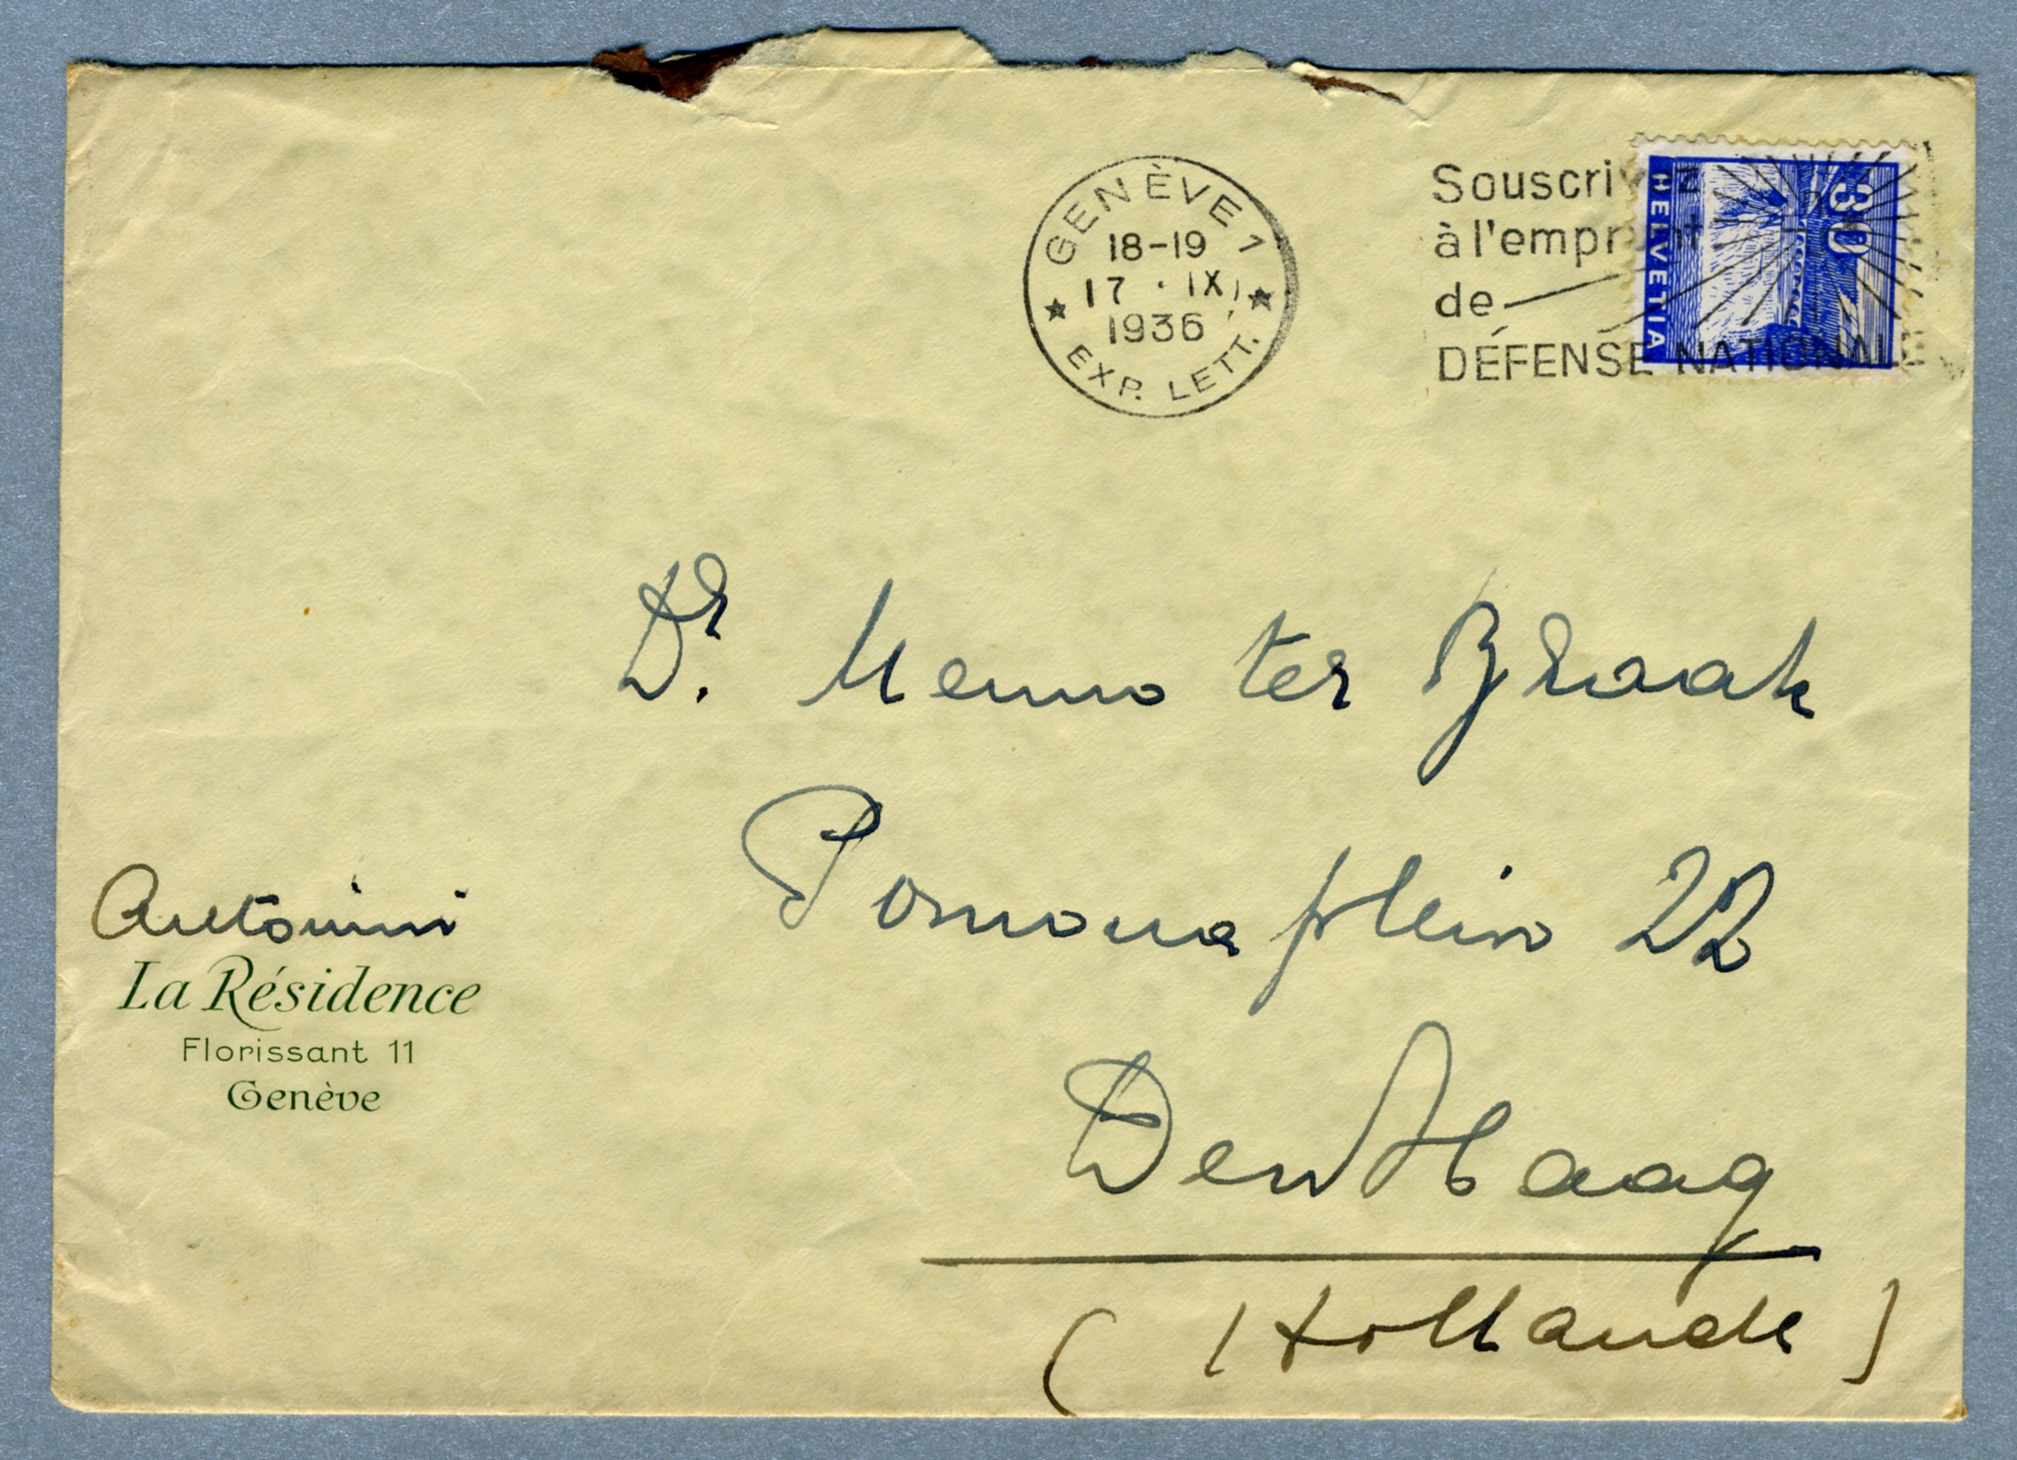 GENÈVE 1
18-19
17 · IX
1936
★ EXP. LETT. ★
Souscrivez
à l'emprunt
de
DÉFENSE NATIONALE
HELVETIA
30
Dr. Menno ter Braak
Pomonaplein 22
Den Haag
(Hollande)
Antonini
La Résidence
Florissant 11
Genève